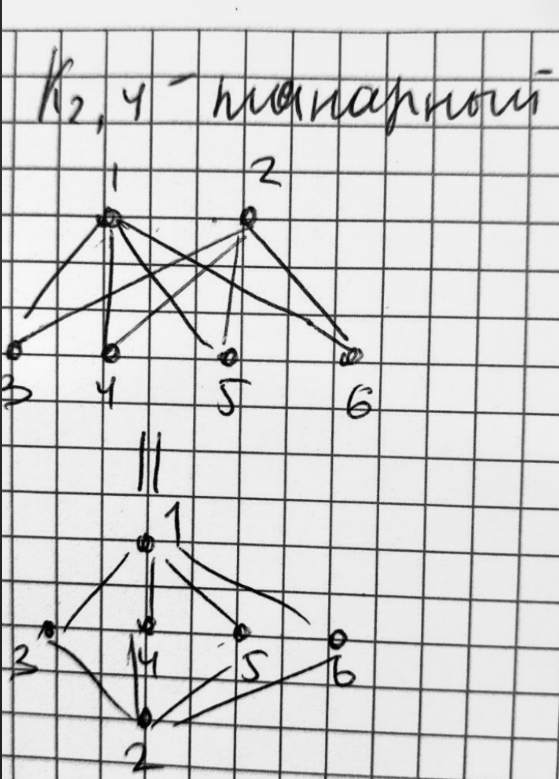 K₂,₄ - планарный
1 2
3 4 5 6
||
1
3 4 5 6
2